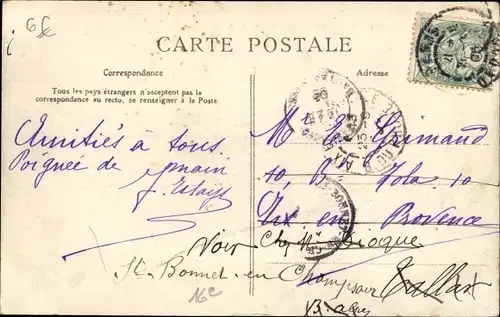 6f
CARTE POSTALE
Correspondance
Adresse
Tous les pays étrangers n'acceptent pas la
correspondance au recto, se renseigner à la Poste
Amitiés à tous.
Poignée de main
M. E. Grimaud
10, Bd Zola 10
Aix en Provence
Voir Chez Mr Dioque
St. Bonnet-en-Champsaur
Tallard
B. Alpes
16e